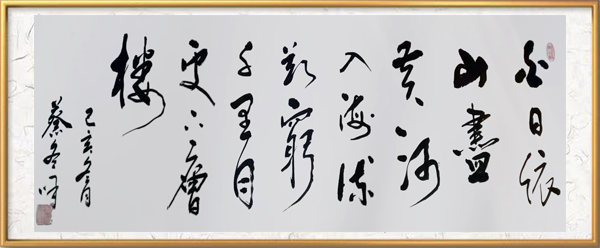 白日依
山盡
黄河
入海流
欲窮
千里目
更上一層
樓
己亥冬月
蔡冬